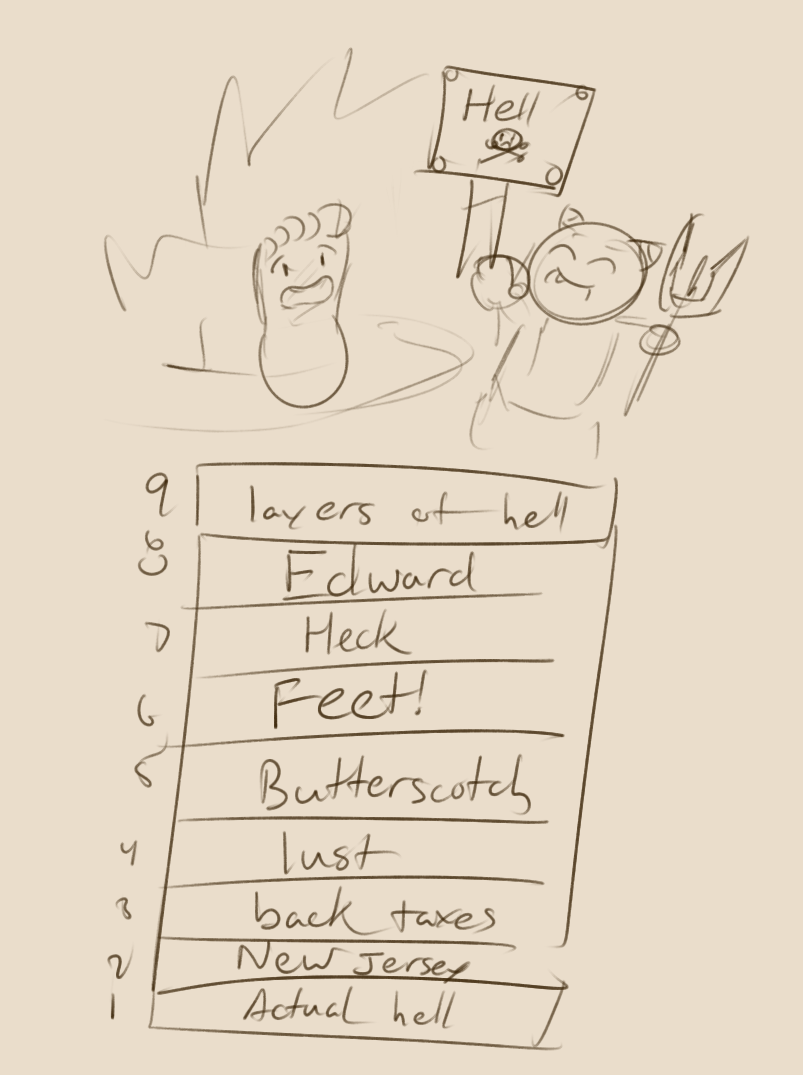 Hell
9 layers of hell
8 Edward
7 Heck
6 Feet!
5 Butterscotch
4 lust
3 back taxes
2 New Jersey
1 Actual hell